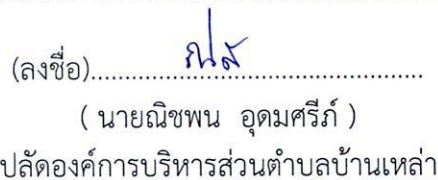 (ลงชื่อ)..............................................
( นายณิชพน อุดมศรีภ์ )
ปลัดองค์การบริหารส่วนตำบลบ้านเหล่า